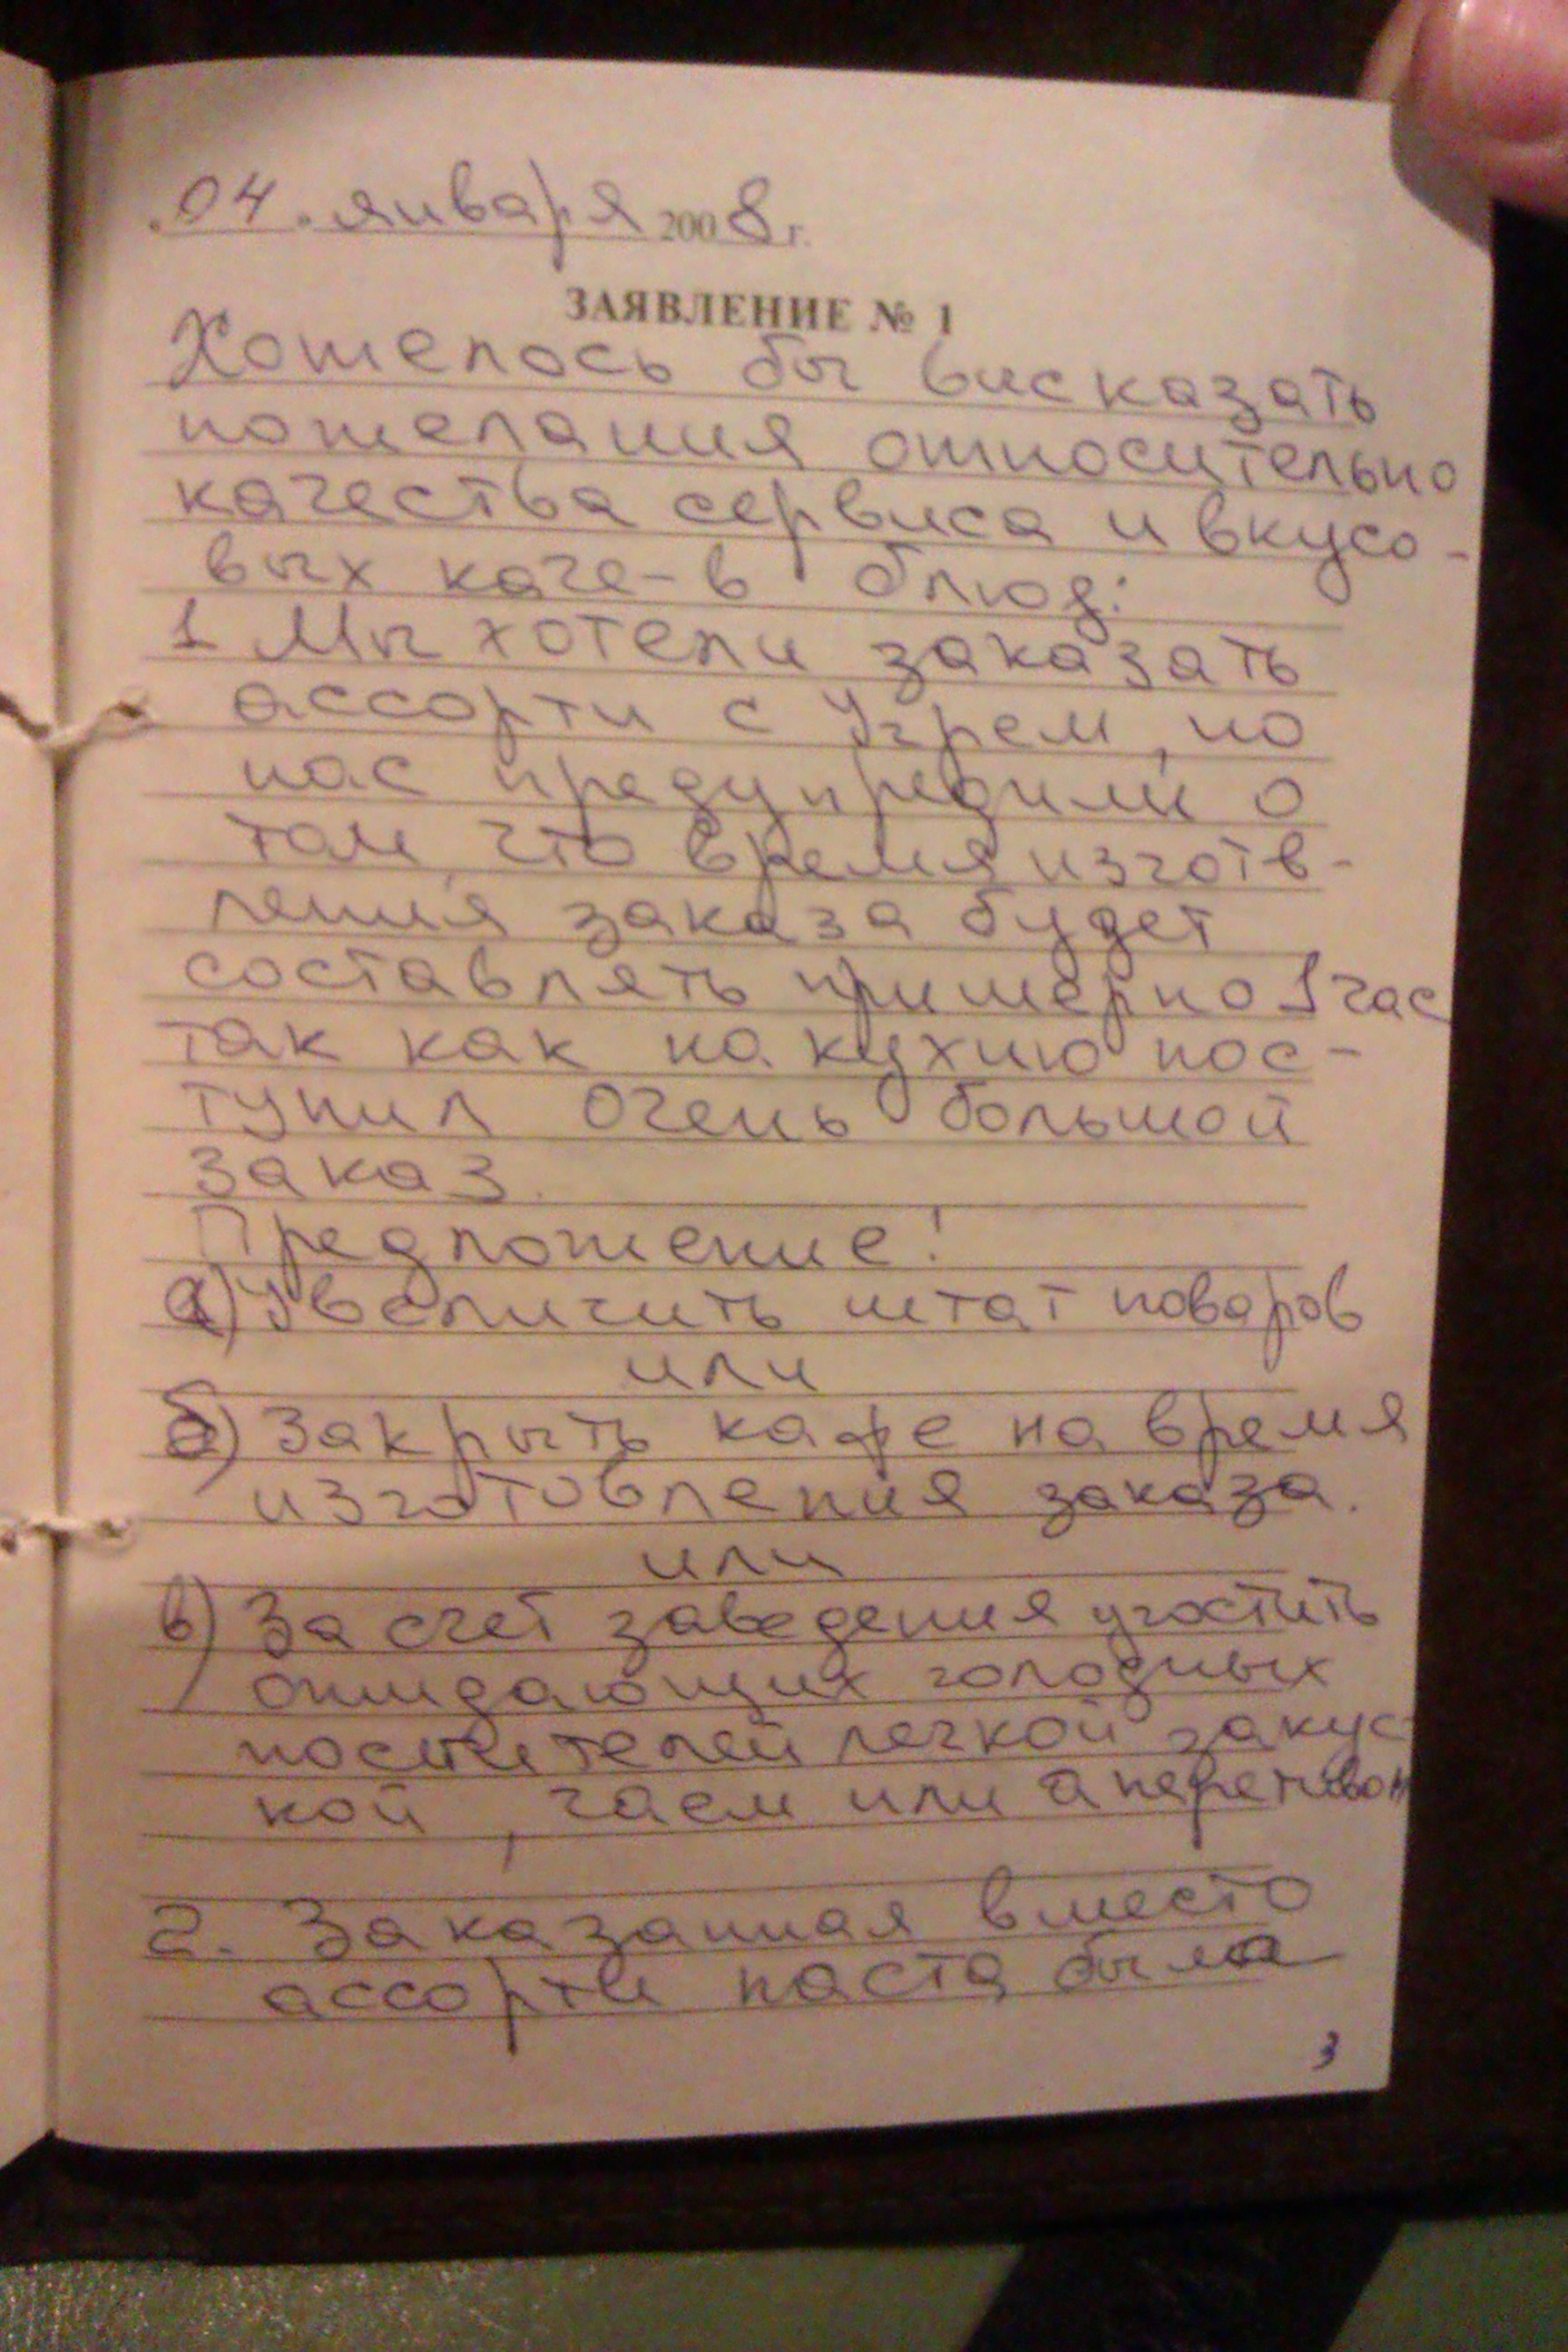 „04“ января 2008 г.
ЗАЯВЛЕНИЕ № 1
Хотелось бы висказать
пожелания относительно
качества сервиса и вкусо-
вых каче-в блюд:
1 Мы хотели заказать
ассорти с Угрем, но
нас предупредили о
том, что время изготв-
ления заказа будет
составлять примерно 1 час
так как на кухню пос-
тупил очень большой
заказ.
Предложение!
а) Увеличить штат поваров
или
б) Закрыть кафе на время
изготовления заказа.
или
в) За счет заведения угостить
ожидающих голодных
посетителей легкой закус-
кой, чаем или аперетивом
2. Заказанная вместо
ассорти паста была
3